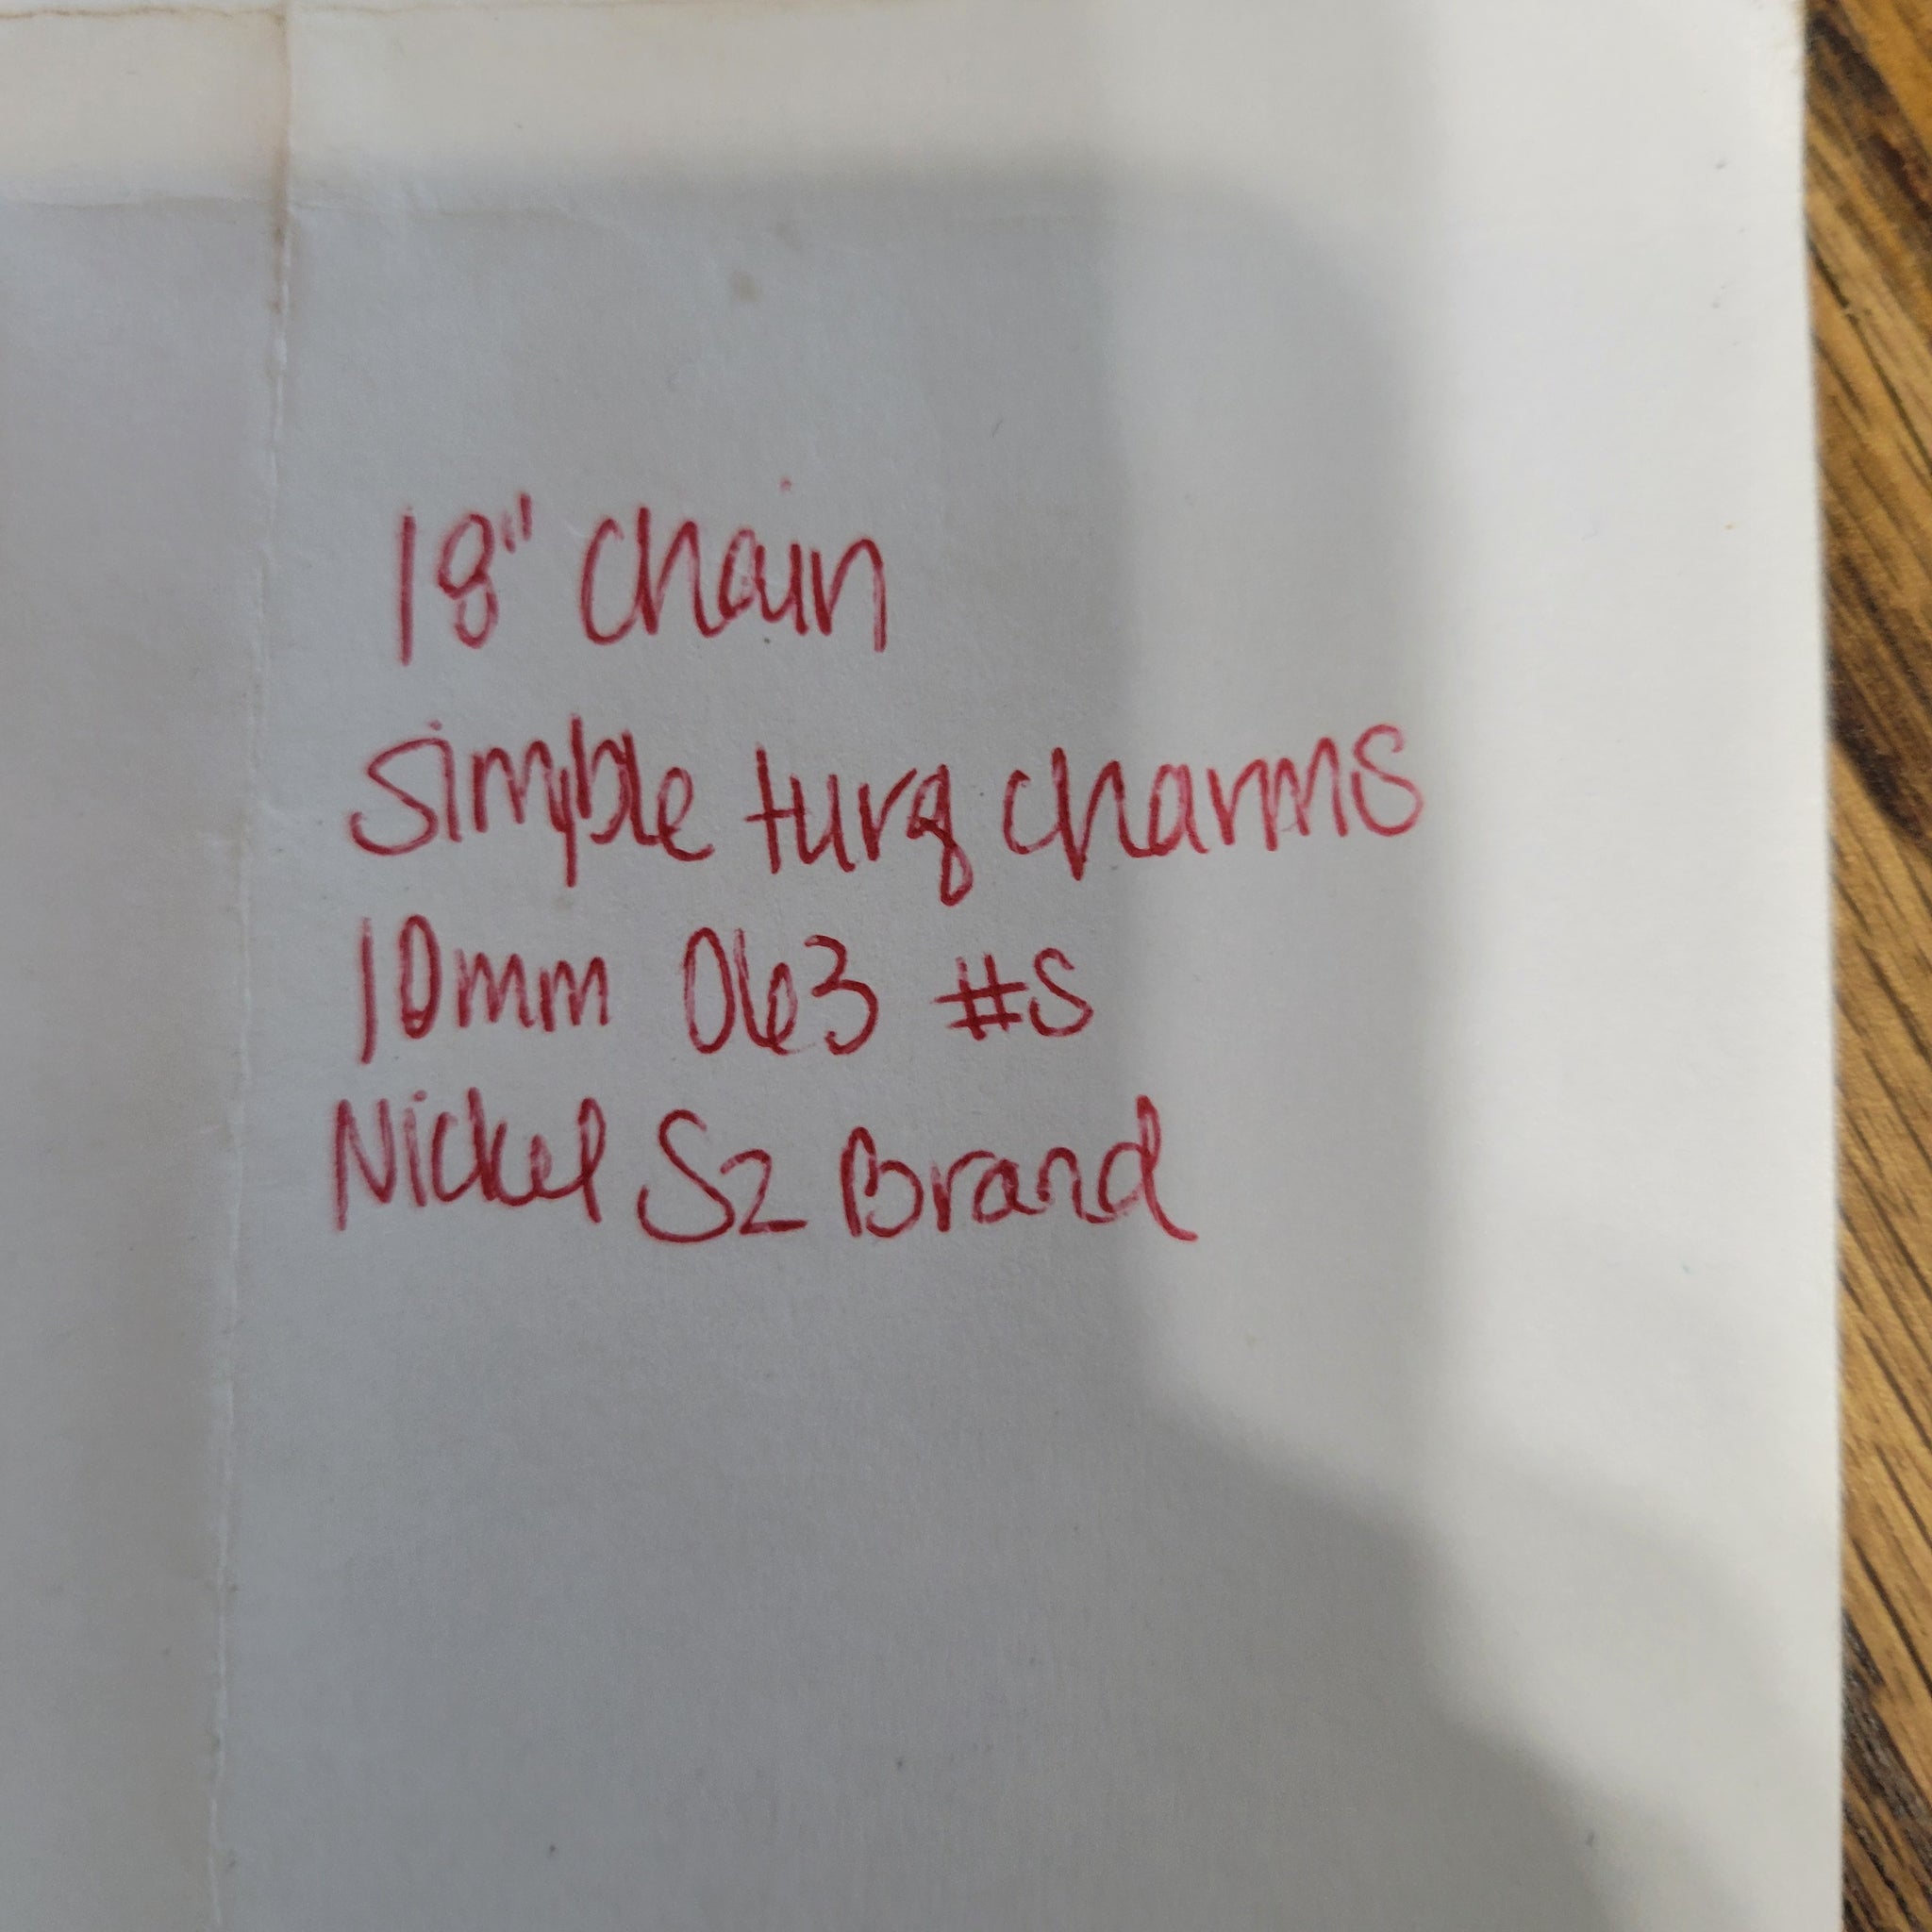 18" Chain
Simple turq charms
10mm 063 #s
Nickel S2 Brand